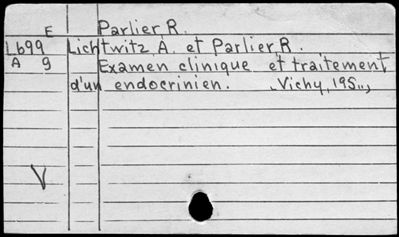 E Parlier R.
L699 Lichtwitz A. et Parlier, R.
A 9 Examen clinique et traitement
d'un endocrinien. Vichy, 195..,
V